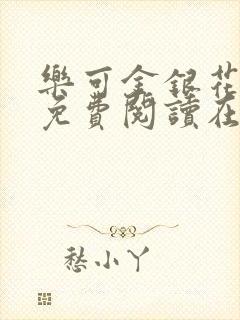 樂可金銀花
免費閱讀在
愁小丫